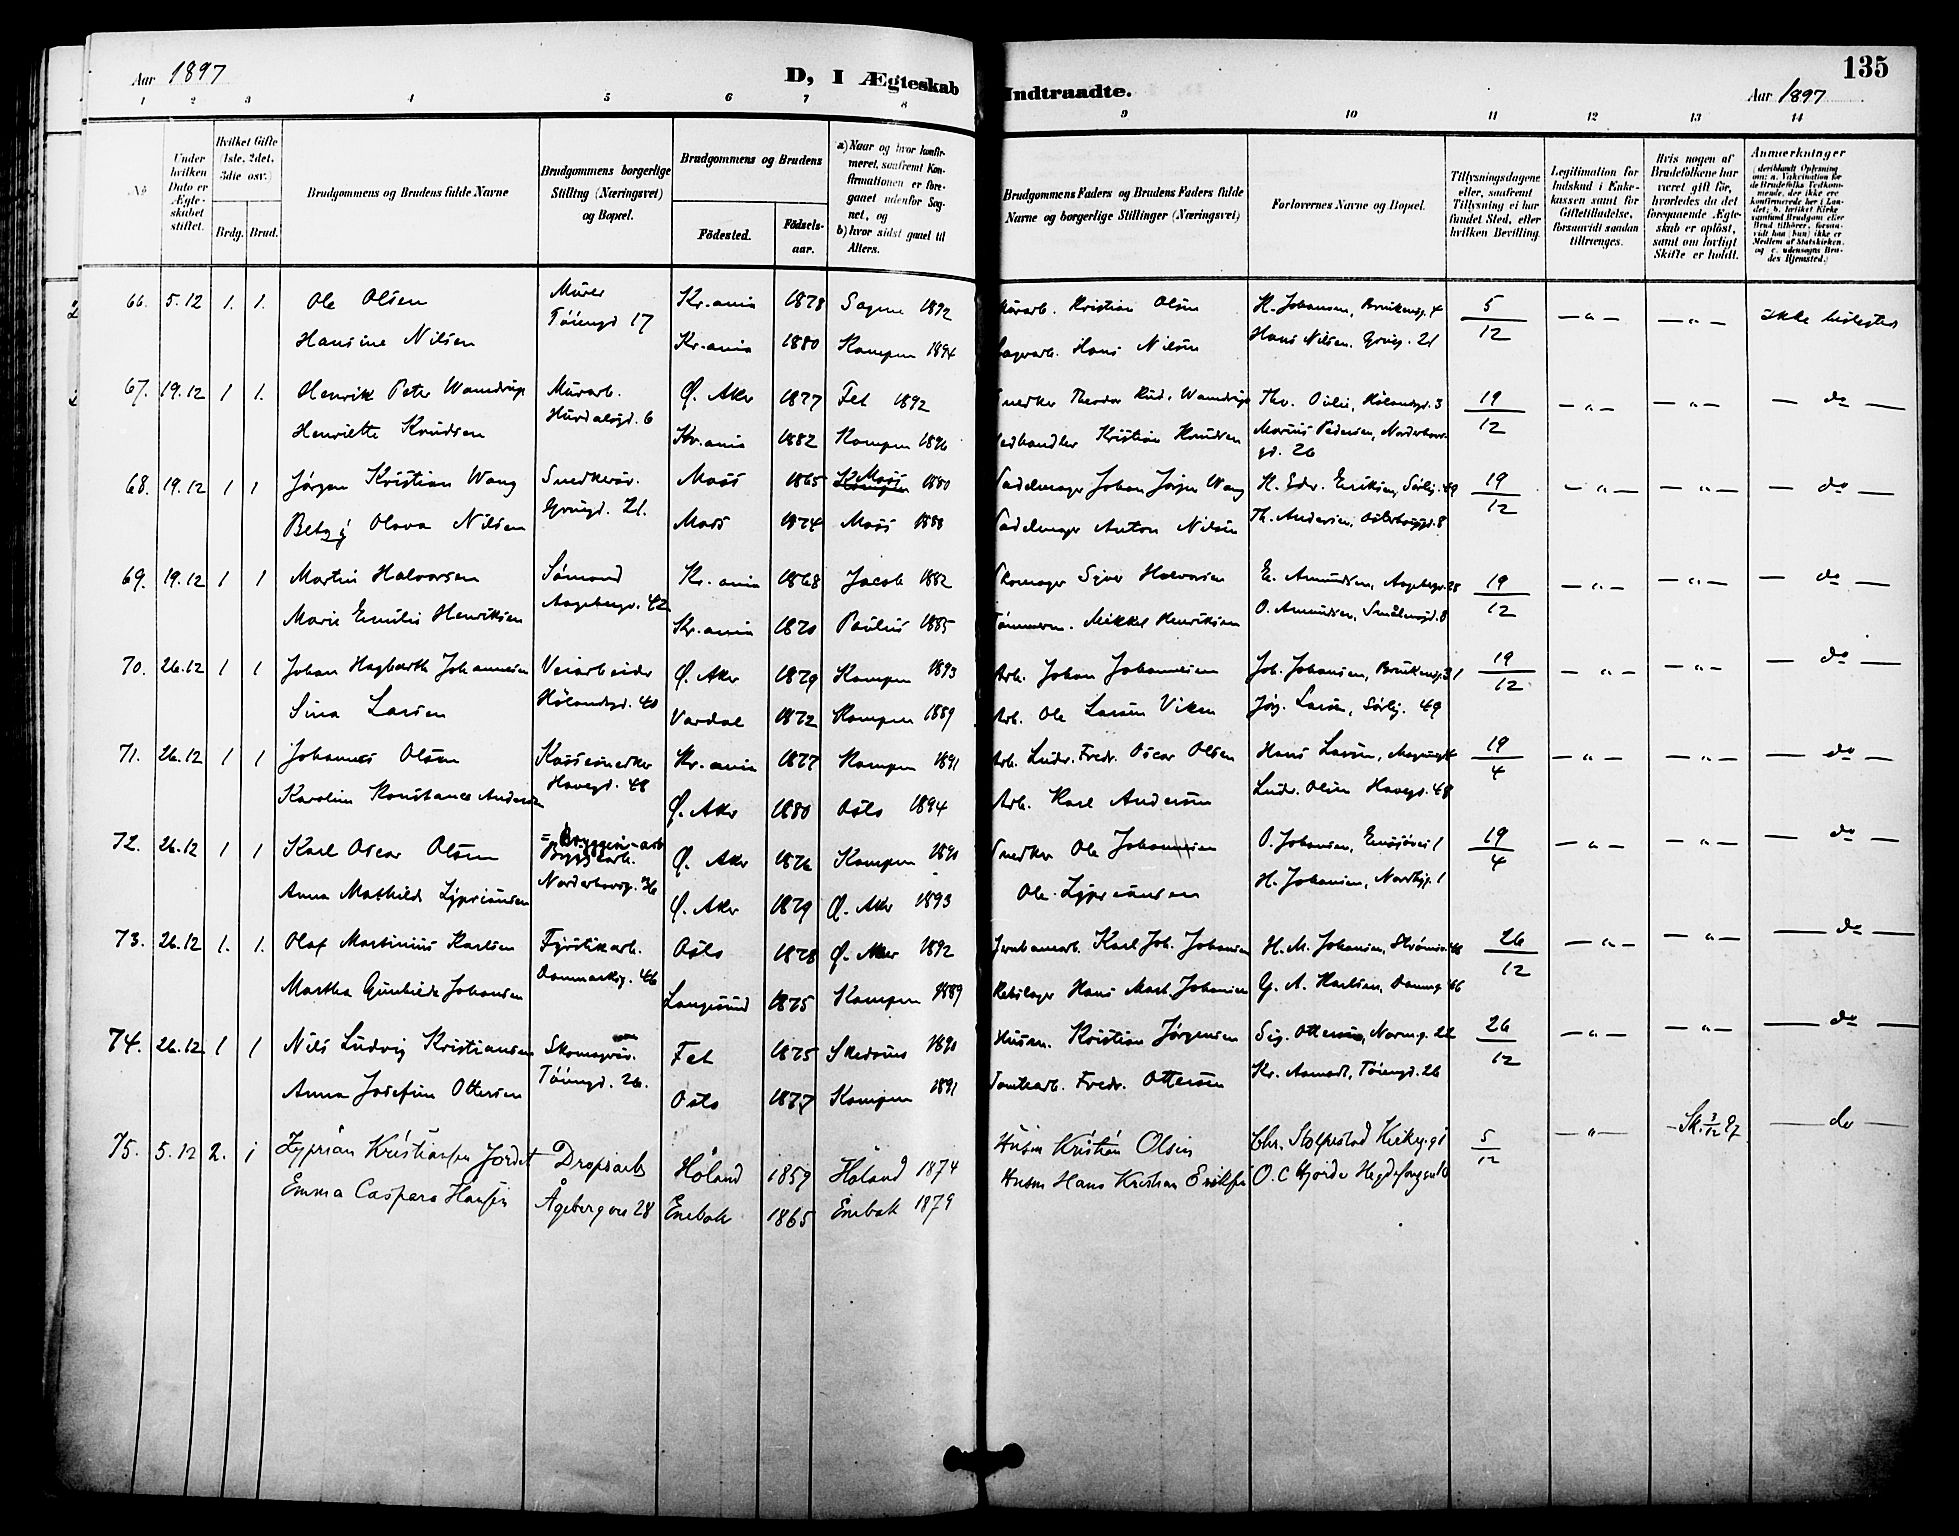 135
Aar 1897
D, I Ægteskab Indtraadte.
Aar 1897
1 2 3 4 5 6 7 8 9 10 11 12 13 14
No
Under hvilken Dato er Ægteskabet stiftet.
Hvilket Gifte (1ste, 2det, 3die osv.)
Brdg. Brud.
Brudgommens og Brudens fulde Navne
Brudgommens borgerlige Stilling (Næringsvei) og Bopæl.
Brudgommens og Brudens
Fødested.
Fødsels-aar.
a) Naar og hvor konfirmeret, saafremt Konfirmationen er foregaaet udenfor Sognet, og
b) hvor sidst gaaet til Alters.
Brudgommens Faders og Brudens Faders fulde Navne og borgerlige Stillinger (Næringsvei)
Forlovernes Navne og Bopæl.
Tillysningsdagene eller, saafremt Tillysning ei har fundet Sted, efter hvilken Bevilling.
Legitimation for Indskud i Enkekassen samt for Giftetilladelse, forsaavidt saadan tiltrænges.
Hvis nogen af Brudefolkene har været gift før, hvorledes da det foregaaende Ægteskab er opløst, samt om lovligt Skifte er holdt.
Anmerkninger
66. 5.12 1. 1. Ole Olsen Murer Kr.ania 1878 Sagene 1892 Kristian Olsen H. Johansen, 4 5/12 — " — — " — ikke beslegtet
Hansine Nilsen Tøiengd 17 Kr.ania 1880 Kampen 1894 Hans Nilsen Hans Nilsen, Grüg. 21
67. 19.12 1 1. Henrik Peter Wamdrup Murarb. Ø. Aker 1877 Fet 1892 Snedker Theodor Rud. Wamdrup Th. Hølandsgd. 3 19/12 — " — — " — — do —
Henriette Knudsen Hurdalsgd. 6 Kr.ania 1882 Kampen 1896 Kristian Knudsen Marius Pedersen, Norderhovs-
gd. 26
68. 19.12 1 1 Jørgen Kristian Wang Snedkersv. Moss 1865 Moss 1880 Sadelmager Johan Jørgen Wang H. Edv. Eriksen, Sørlig. 49 19/12 — " — — " — — do —
Betzy Olava Nilsen Grüngd. 21. Moss 1874 Moss 1888 Sadelmager Anton Nilsen Th. Andersen, 8
69. 19.12 1 1 Martin Halvorsen Sømand Kr.ania 1868 Jacob 1882 Skomager Syver Halvorsen E. Amundsen, Aagebergv. 28 19/12 — " — — " — — do —
Marie Emilie Henriksen Aagebergv. 42 Kr.ania 1870 Paulus 1885 Tømmerm. Mikkel Henriksen O. Amundsen, Smålensgd. 8
70. 26.12 1 1 Johan Hagbarth Johannesen Veiarbeider Ø. Aker 1879 Kampen 1893 Arb. Johan Johannesen Joh. Johansen, 31 19/12 — " — — " — — do —
Sina Larsen Hølandsgd. 40 Vardal 1872 Kampen 1889 Arb. Ole Larsen Viken Jørg. Larsen, Sørlig. 49
71. 26.12 1 1 Johannes Olsen Kassesnedker Kr.ania 1877 Kampen 1891 Arb. Ludv. Fredr. Oscar Olsen Hans Larsen, 19/4 — " — — " — — do —
Karoline Konstance Andersen Havegd. 48 Ø. Aker 1880 Oslo 1894 Arb. Karl Andersen Ludv. Olsen Havegd. 48
72. 26.12 1 1 Karl Oscar Olsen = Bryggeri-arb Ø. Aker 1876 Kampen 1890 Snedker Ole Johannesen O. Johansen, Ensjøvei 1 19/4 — " — — " — — do —
Anna Mathilde Zypriansen Norderhovsg. 36 Ø. Aker 1879 Ø. Aker 1893 Ole Zypriansen H. Johansen, Nordbyg. 1
73. 26.12 1. 1. Olaf Martinius Karlsen Fyrstikarb. Oslo 1878 Ø. Aker 1892 Jernbanearb. Karl Joh. Johansen H. M. Johansen, Strømsv. 26/12 — " — — " — — do —
Martha Gunhilde Johansen Danmarksg. 46 Langesund 1875 Kampen 1889 Rebslager Hans Mart. Johansen G. A. Karlsen, Danmg. 46
74. 26.12 1 1 Nils Ludvig Kristiansen Skomagersv. Fet 1875 Skedsmo 1890 Husm. Kristian Jørgensen Sig. Ottersen, Normg. 22 26/12 — " — — " — — do —
Anna Josefine Ottersen Tøiengd. 26. Oslo 1877 Kampen 1891 Tomtearb. Fredr. Ottersen Kr. Aamodt, Tøiengd. 26
75. 5.12 2. 1 Zyprian Kristiansen Jordet Dropsarb Høland 1859 Høland 1874 Husm Kristian Olsen Chr. Stolpestad 5/12 — " — Sk. 3/12 97 — do
Emma Caspara Hansen Ågebergvei 28 Enebak 1865 Enebak 1879 Husm Hans Kristian Eriksen O. C Hjorde